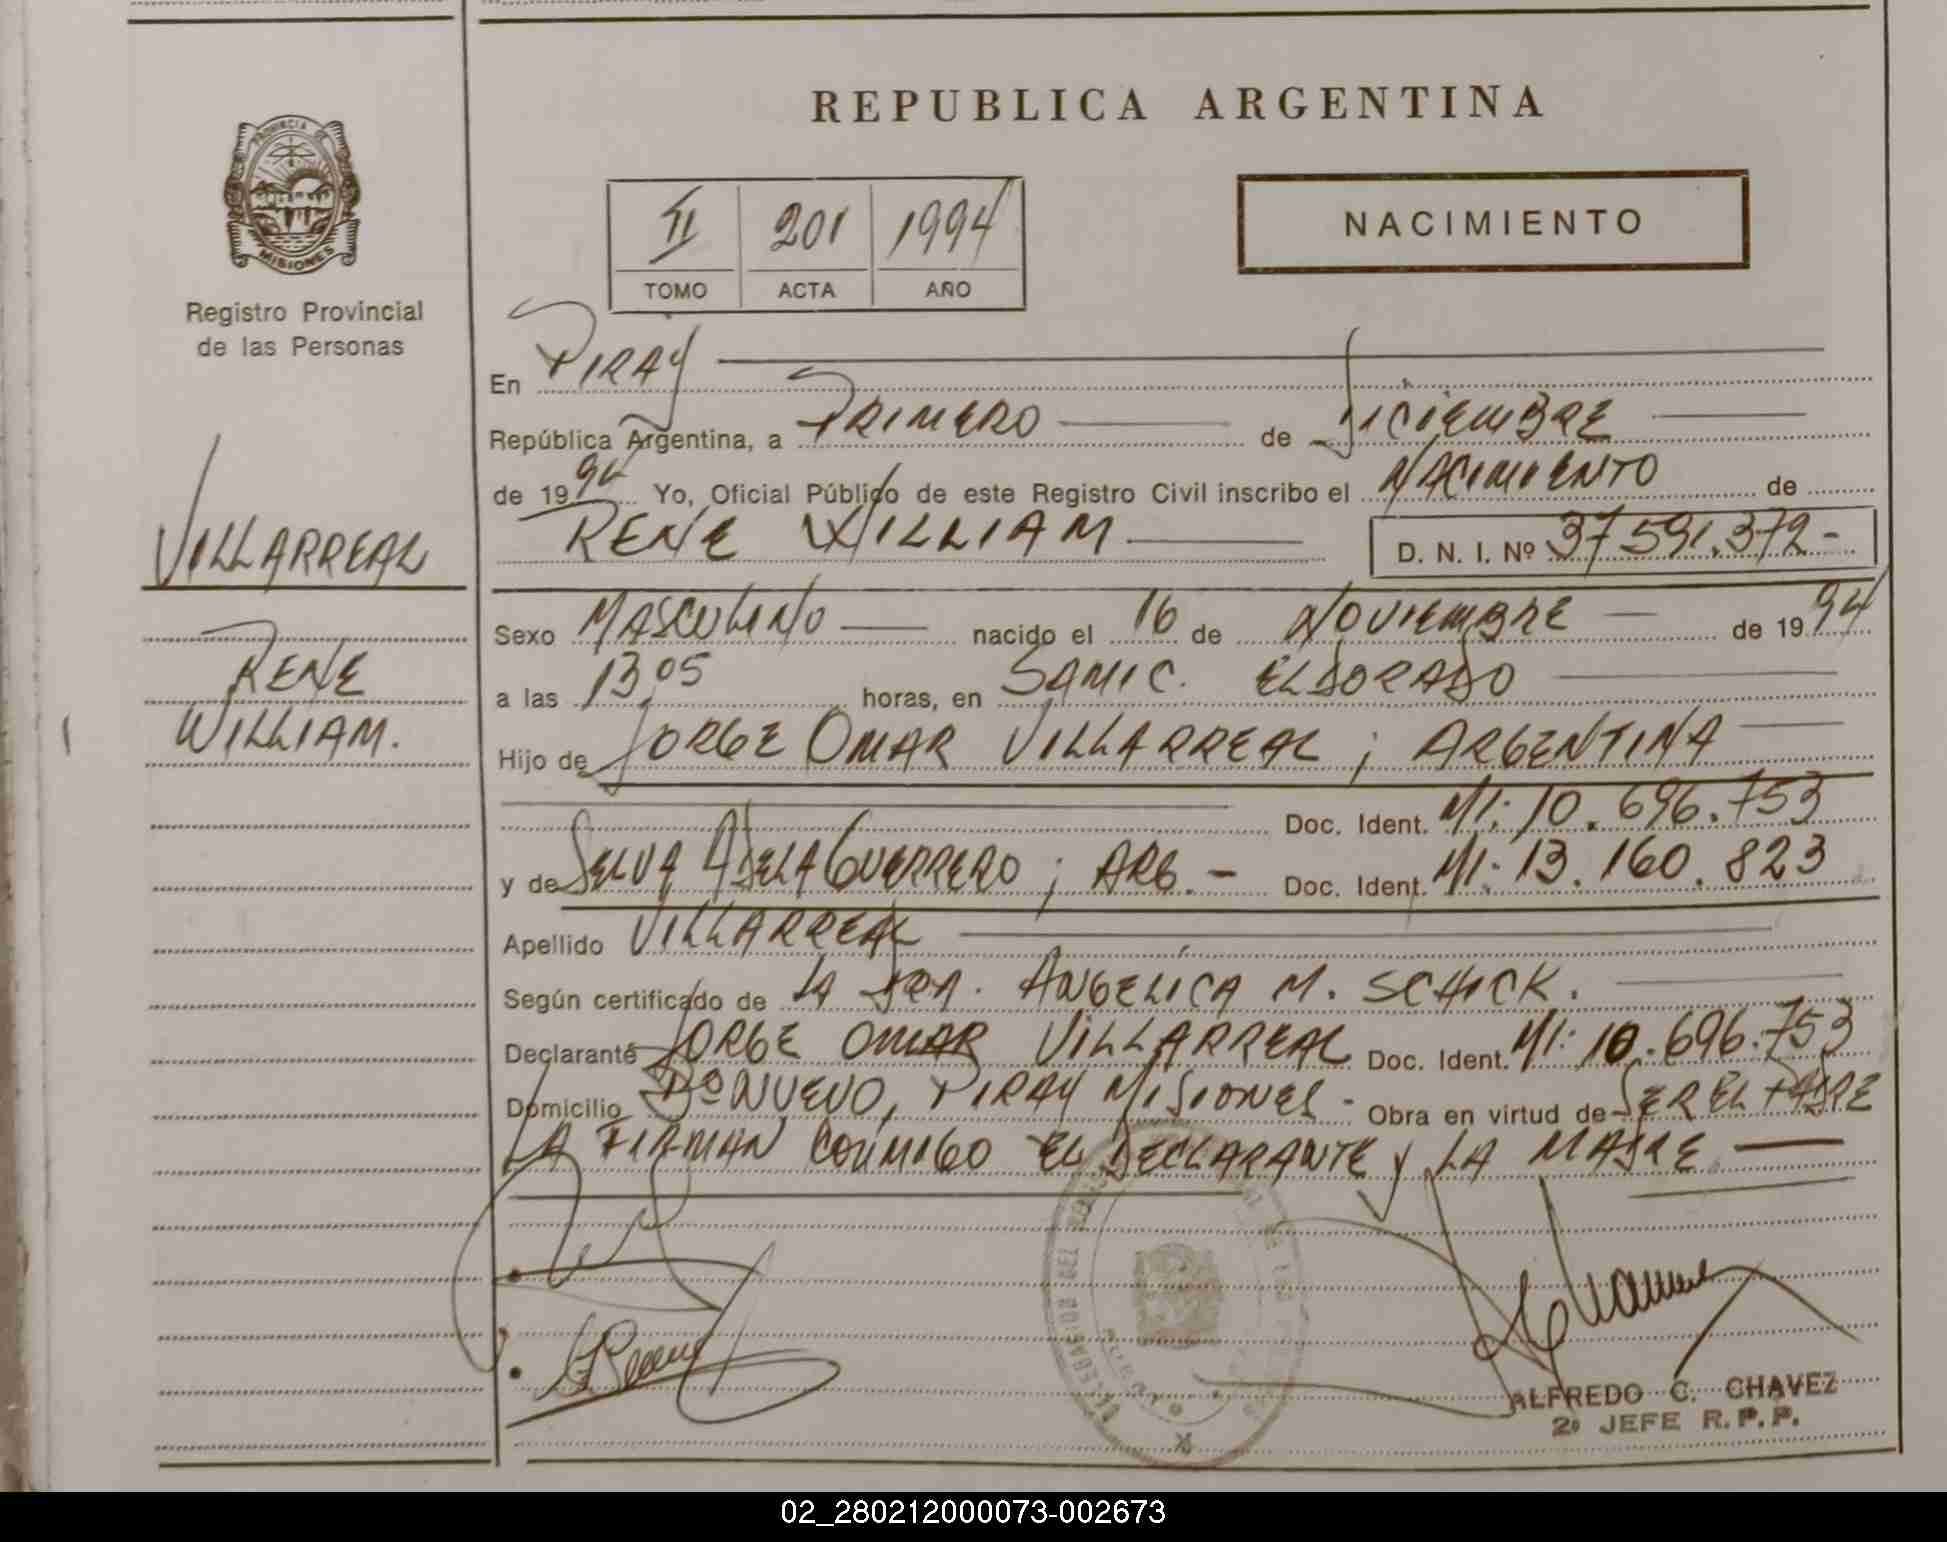 REPUBLICA ARGENTINA
PROVINCIA DE
MISIONES
Registro Provincial
de las Personas
VILLARREAL
RENE
WILLIAM.
II 201 1994
TOMO ACTA AÑO
NACIMIENTO
En PIRAY
República Argentina, a PRIMERO de DICIEMBRE
de 1994 Yo, Oficial Público de este Registro Civil inscribo el NACIMIENTO de
RENE WILLIAM D. N. I. Nº 37591.372-
Sexo MASCULINO nacido el 16 de NOVIEMBRE de 1994
a las 13,05 horas, en SAMIC. ELDORADO
Hijo de JORGE OMAR VILLARREAL ; ARGENTINA
Doc. Ident. MI: 10.696.753
y de SELVA ADELA GUERRERO ; ARG. - Doc. Ident. MI: 13.160.823
Apellido VILLARREAL
Según certificado de LA DRA. ANGELICA M. SCHICK.
Declarante JORGE OMAR VILLARREAL Doc. Ident. MI: 10.696.753
Domicilio Bº NUEVO, PIRAY MISIONES - Obra en virtud de SER EL PADRE
LA FIRMAN CONMIGO EL DECLARANTE Y LA MADRE
ALFREDO C. CHAVEZ
2º JEFE R.P.P.
02_280212000073-002673